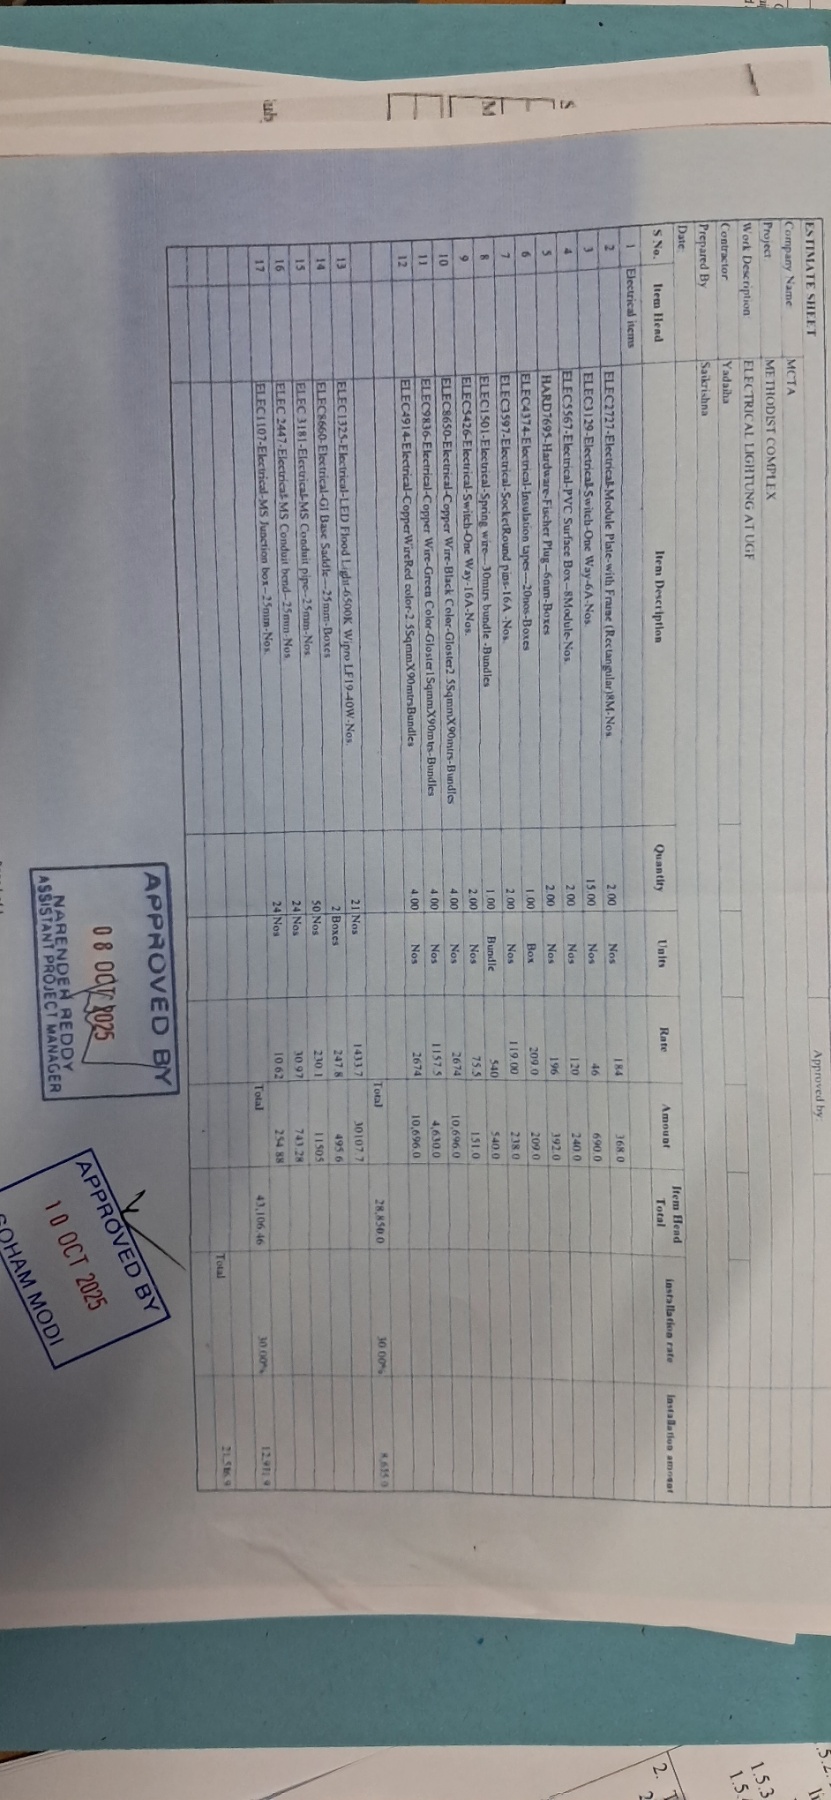 ESTIMATE SHEET
Company Name MCTA Approved by:
Project METHODIST COMPLEX
Work Description ELECTRICAL LIGHTUNG AT UGF
Contractor Yadaiha
Prepared By Saikrishna
Date
S No. Item Head Item Description Quantity Units Rate Amount Item Head Total installation rate installation amount
1 Electrical items
2 ELEC2727-Electrical-Module Plate-with Frame (Rectangular)8M-Nos. 2.00 Nos 184 368.0
3 ELEC3129-Electrical-Switch-One Way-6A-Nos. 15.00 Nos 46 690.0
4 ELEC5567-Electrical-PVC Surface Box--8Module-Nos. 2.00 Nos 120 240.0
5 HARD7695-Hardware-Fischer Plug--6mm-Boxes 2.00 Nos 196 392.0
6 ELEC4374-Electrical-Insulation tapes---20nos-Boxes 1.00 Box 209.0 209.0
7 ELEC3597-Electrical-SocketRound pins-16A -Nos. 2.00 Nos 119.00 238.0
8 ELEC1501-Electrical-Spring wire--30mtrs bundle -Bundles 1.00 Bundle 540 540.0
9 ELEC5426-Electrical-Switch-One Way-16A-Nos. 2.00 Nos 75.5 151.0
10 ELEC8650-Electrical-Copper Wire-Black Color-Gloster2.5SqmmX90mtrs-Bundles 4.00 Nos 2674 10,696.0
11 ELEC9836-Electrical-Copper Wire-Green Color-Gloster1SqmmX90mtrs-Bundles 4.00 Nos 1157.5 4,630.0
12 ELEC4914-Electrical-CopperWireRed color-2.5SqmmX90mtrsBundles 4.00 Nos 2674 10,696.0
Total 28,850.0 30.00% 8,655.0
13 ELEC1325-Electrical-LED Flood Light-6500K Wipro LF19-40W-Nos. 21 Nos 1433.7 30107.7
14 ELEC8660-Electrical-GI Base Saddle---25mm-Boxes 2 Boxes 247.8 495.6
15 ELEC 3181-Electrical-MS Conduit pipe--25mm-Nos 50 Nos 230.1 11505
16 ELEC 2447-Electrical-MS Conduit bend--25mm-Nos 24 Nos 30.97 743.28
17 ELEC1107-Electrical-MS Junction box--25mm-Nos. 24 Nos 10.62 254.88
Total 43,106.46 30.00% 12,931.9
Total 21,586.9
APPROVED BY
08 OCT 2025
NARENDER REDDY
ASSISTANT PROJECT MANAGER
APPROVED BY
10 OCT 2025
SOHAM MODI